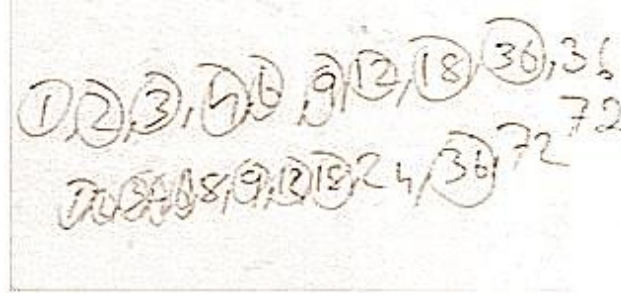 1, 2, 3, 4, 6, 9, 12, 18, 36, 36
72
1, 2, 3, 4, 6, 8, 9, 12, 18, 24, 36, 72